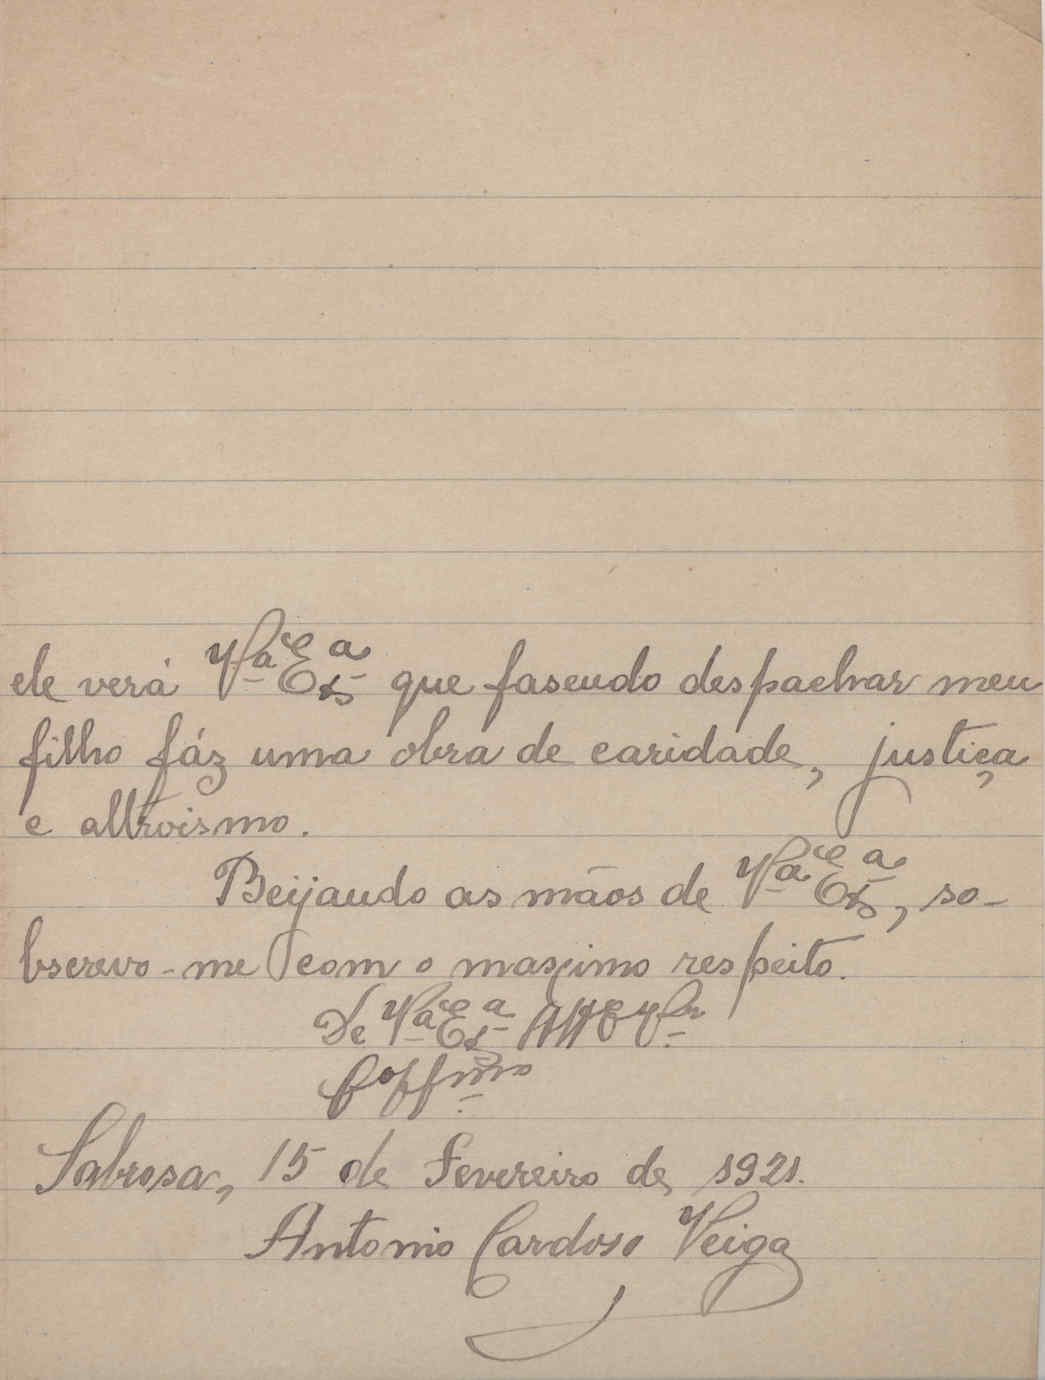 ele verá V.ª Ex.cia que fasendo despachar meu
filho fáz uma obra de caridade, justiça
e altroismo.
Beijando as mãos de V.ª Ex.cia, so-
bscrevo-me com o maximo respeito.
De V.ª Ex.cia
Sabrosa, 15 de Fevereiro de 1921.
Antonio Cardoso Veiga